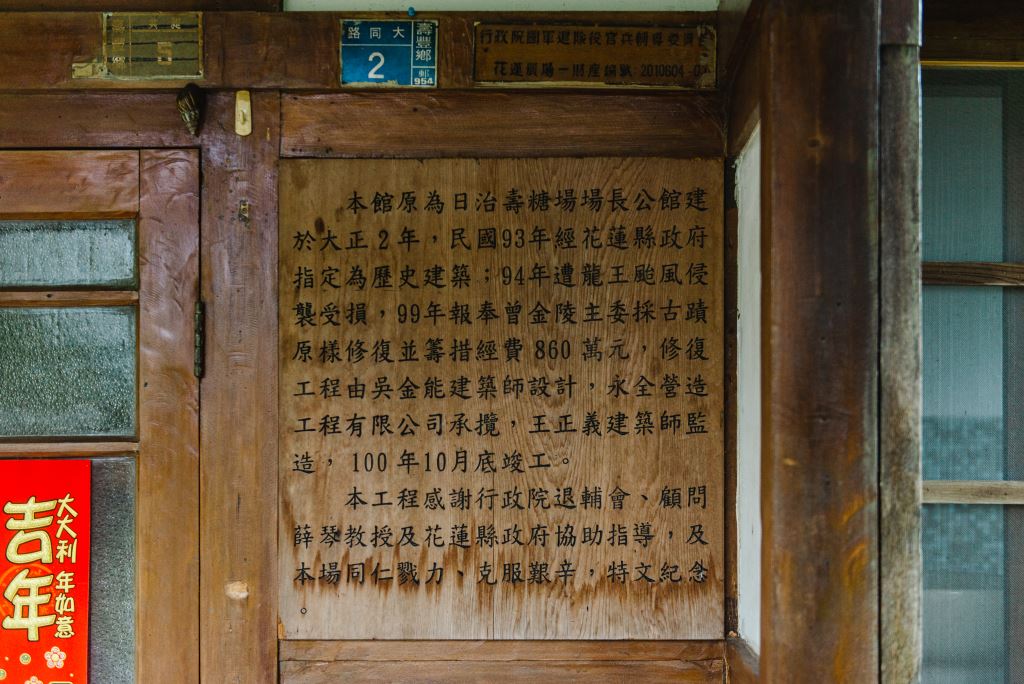 大同路
2
壽豐鄉
郵954
行政院國軍退除役官兵輔導委員會
花蓮農場－財產編號:2010604-0
本館原為日治壽糖場場長公館建
於大正2年，民國93年經花蓮縣政府
指定為歷史建築；94年遭龍王颱風侵
襲受損，99年報奉曾金陵主委採古蹟
原樣修復並籌措經費860萬元，修復
工程由吳金能建築師設計，永全營造
工程有限公司承攬，王正義建築師監
造，100年10月底竣工。
本工程感謝行政院退輔會、顧問
薛琴教授及花蓮縣政府協助指導，及
本場同仁戮力、克服艱辛，特文紀念
。
大大利 年如意
吉年